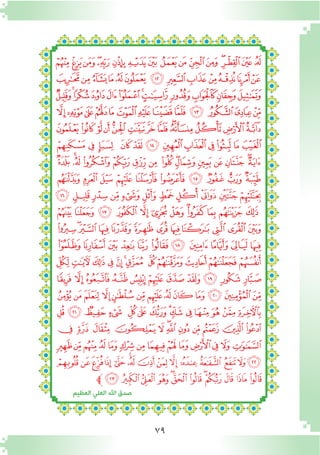 لَهُۥ عَيْنَ ٱلْقِطْرِ ۖ وَمِنَ ٱلْجِنِّ مَن يَعْمَلُ بَيْنَ يَدَيْهِ بِإِذْنِ رَبِّهِۦ ۖ وَمَن يَزِغْ مِنْهُمْ
عَنْ أَمْرِنَا نُذِقْهُ مِنْ عَذَابِ ٱلسَّعِيرِ ﴿١٢﴾ يَعْمَلُونَ لَهُۥ مَا يَشَآءُ مِن مَّحَٰرِيبَ
وَتَمَٰثِيلَ وَجِفَانٍ كَٱلْجَوَابِ وَقُدُورٍ رَّاسِيَٰتٍ ۚ ٱعْمَلُوٓا۟ ءَالَ دَاوُۥدَ شُكْرًا ۚ وَقَلِيلٌ
مِّنْ عِبَادِىَ ٱلشَّكُورُ ﴿١٣﴾ فَلَمَّا قَضَيْنَا عَلَيْهِ ٱلْمَوْتَ مَا دَلَّهُمْ عَلَىٰ مَوْتِهِۦٓ إِلَّا
دَآبَّةُ ٱلْأَرْضِ تَأْكُلُ مِنسَأَتَهُۥ ۖ فَلَمَّا خَرَّ تَبَيَّنَتِ ٱلْجِنُّ أَن لَّوْ كَانُوا۟ يَعْلَمُونَ
ٱلْغَيْبَ مَا لَبِثُوا۟ فِى ٱلْعَذَابِ ٱلْمُهِينِ ﴿١٤﴾ لَقَدْ كَانَ لِسَبَإٍ فِى مَسْكَنِهِمْ
ءَايَةٌ ۖ جَنَّتَانِ عَن يَمِينٍ وَشِمَالٍ ۖ كُلُوا۟ مِن رِّزْقِ رَبِّكُمْ وَٱشْكُرُوا۟ لَهُۥ ۚ بَلْدَةٌ
طَيِّبَةٌ وَرَبٌّ غَفُورٌ ﴿١٥﴾ فَأَعْرَضُوا۟ فَأَرْسَلْنَا عَلَيْهِمْ سَيْلَ ٱلْعَرِمِ وَبَدَّلْنَٰهُم
بِجَنَّتَيْهِمْ جَنَّتَيْنِ ذَوَاتَىْ أُكُلٍ خَمْطٍ وَأَثْلٍ وَشَىْءٍ مِّن سِدْرٍ قَلِيلٍ ﴿١٦﴾
ذَٰلِكَ جَزَيْنَٰهُم بِمَا كَفَرُوا۟ ۖ وَهَلْ نُجَٰزِىٓ إِلَّا ٱلْكَفُورَ ﴿١٧﴾ وَجَعَلْنَا بَيْنَهُمْ
وَبَيْنَ ٱلْقُرَى ٱلَّتِى بَٰرَكْنَا فِيهَا قُرًى ظَٰهِرَةً وَقَدَّرْنَا فِيهَا ٱلسَّيْرَ ۖ سِيرُوا۟
فِيهَا لَيَالِىَ وَأَيَّامًا ءَامِنِينَ ﴿١٨﴾ فَقَالُوا۟ رَبَّنَا بَٰعِدْ بَيْنَ أَسْفَارِنَا وَظَلَمُوٓا۟
أَنفُسَهُمْ فَجَعَلْنَٰهُمْ أَحَادِيثَ وَمَزَّقْنَٰهُمْ كُلَّ مُمَزَّقٍ ۚ إِنَّ فِى ذَٰلِكَ لَءَايَٰتٍ لِّكُلِّ
صَبَّارٍ شَكُورٍ ﴿١٩﴾ وَلَقَدْ صَدَّقَ عَلَيْهِمْ إِبْلِيسُ ظَنَّهُۥ فَٱتَّبَعُوهُ إِلَّا فَرِيقًا
مِّنَ ٱلْمُؤْمِنِينَ ﴿٢٠﴾ وَمَا كَانَ لَهُۥ عَلَيْهِم مِّن سُلْطَٰنٍ إِلَّا لِنَعْلَمَ مَن يُؤْمِنُ
بِٱلْءَاخِرَةِ مِمَّنْ هُوَ مِنْهَا فِى شَكٍّ ۗ وَرَبُّكَ عَلَىٰ كُلِّ شَىْءٍ حَفِيظٌ ﴿٢١﴾ قُلِ
ٱدْعُوا۟ ٱلَّذِينَ زَعَمْتُم مِّن دُونِ ٱللَّهِ ۖ لَا يَمْلِكُونَ مِثْقَالَ ذَرَّةٍ فِى
ٱلسَّمَٰوَٰتِ وَلَا فِى ٱلْأَرْضِ وَمَا لَهُمْ فِيهِمَا مِن شِرْكٍ وَمَا لَهُۥ مِنْهُم مِّن ظَهِيرٍ
﴿٢٢﴾ وَلَا تَنفَعُ ٱلشَّفَٰعَةُ عِندَهُۥٓ إِلَّا لِمَنْ أَذِنَ لَهُۥ ۚ حَتَّىٰٓ إِذَا فُزِّعَ عَن قُلُوبِهِمْ
قَالُوا۟ مَاذَا قَالَ رَبُّكُمْ ۖ قَالُوا۟ ٱلْحَقَّ ۖ وَهُوَ ٱلْعَلِىُّ ٱلْكَبِيرُ ﴿٢٣﴾
صدق الله العلي العظيم
٧٩